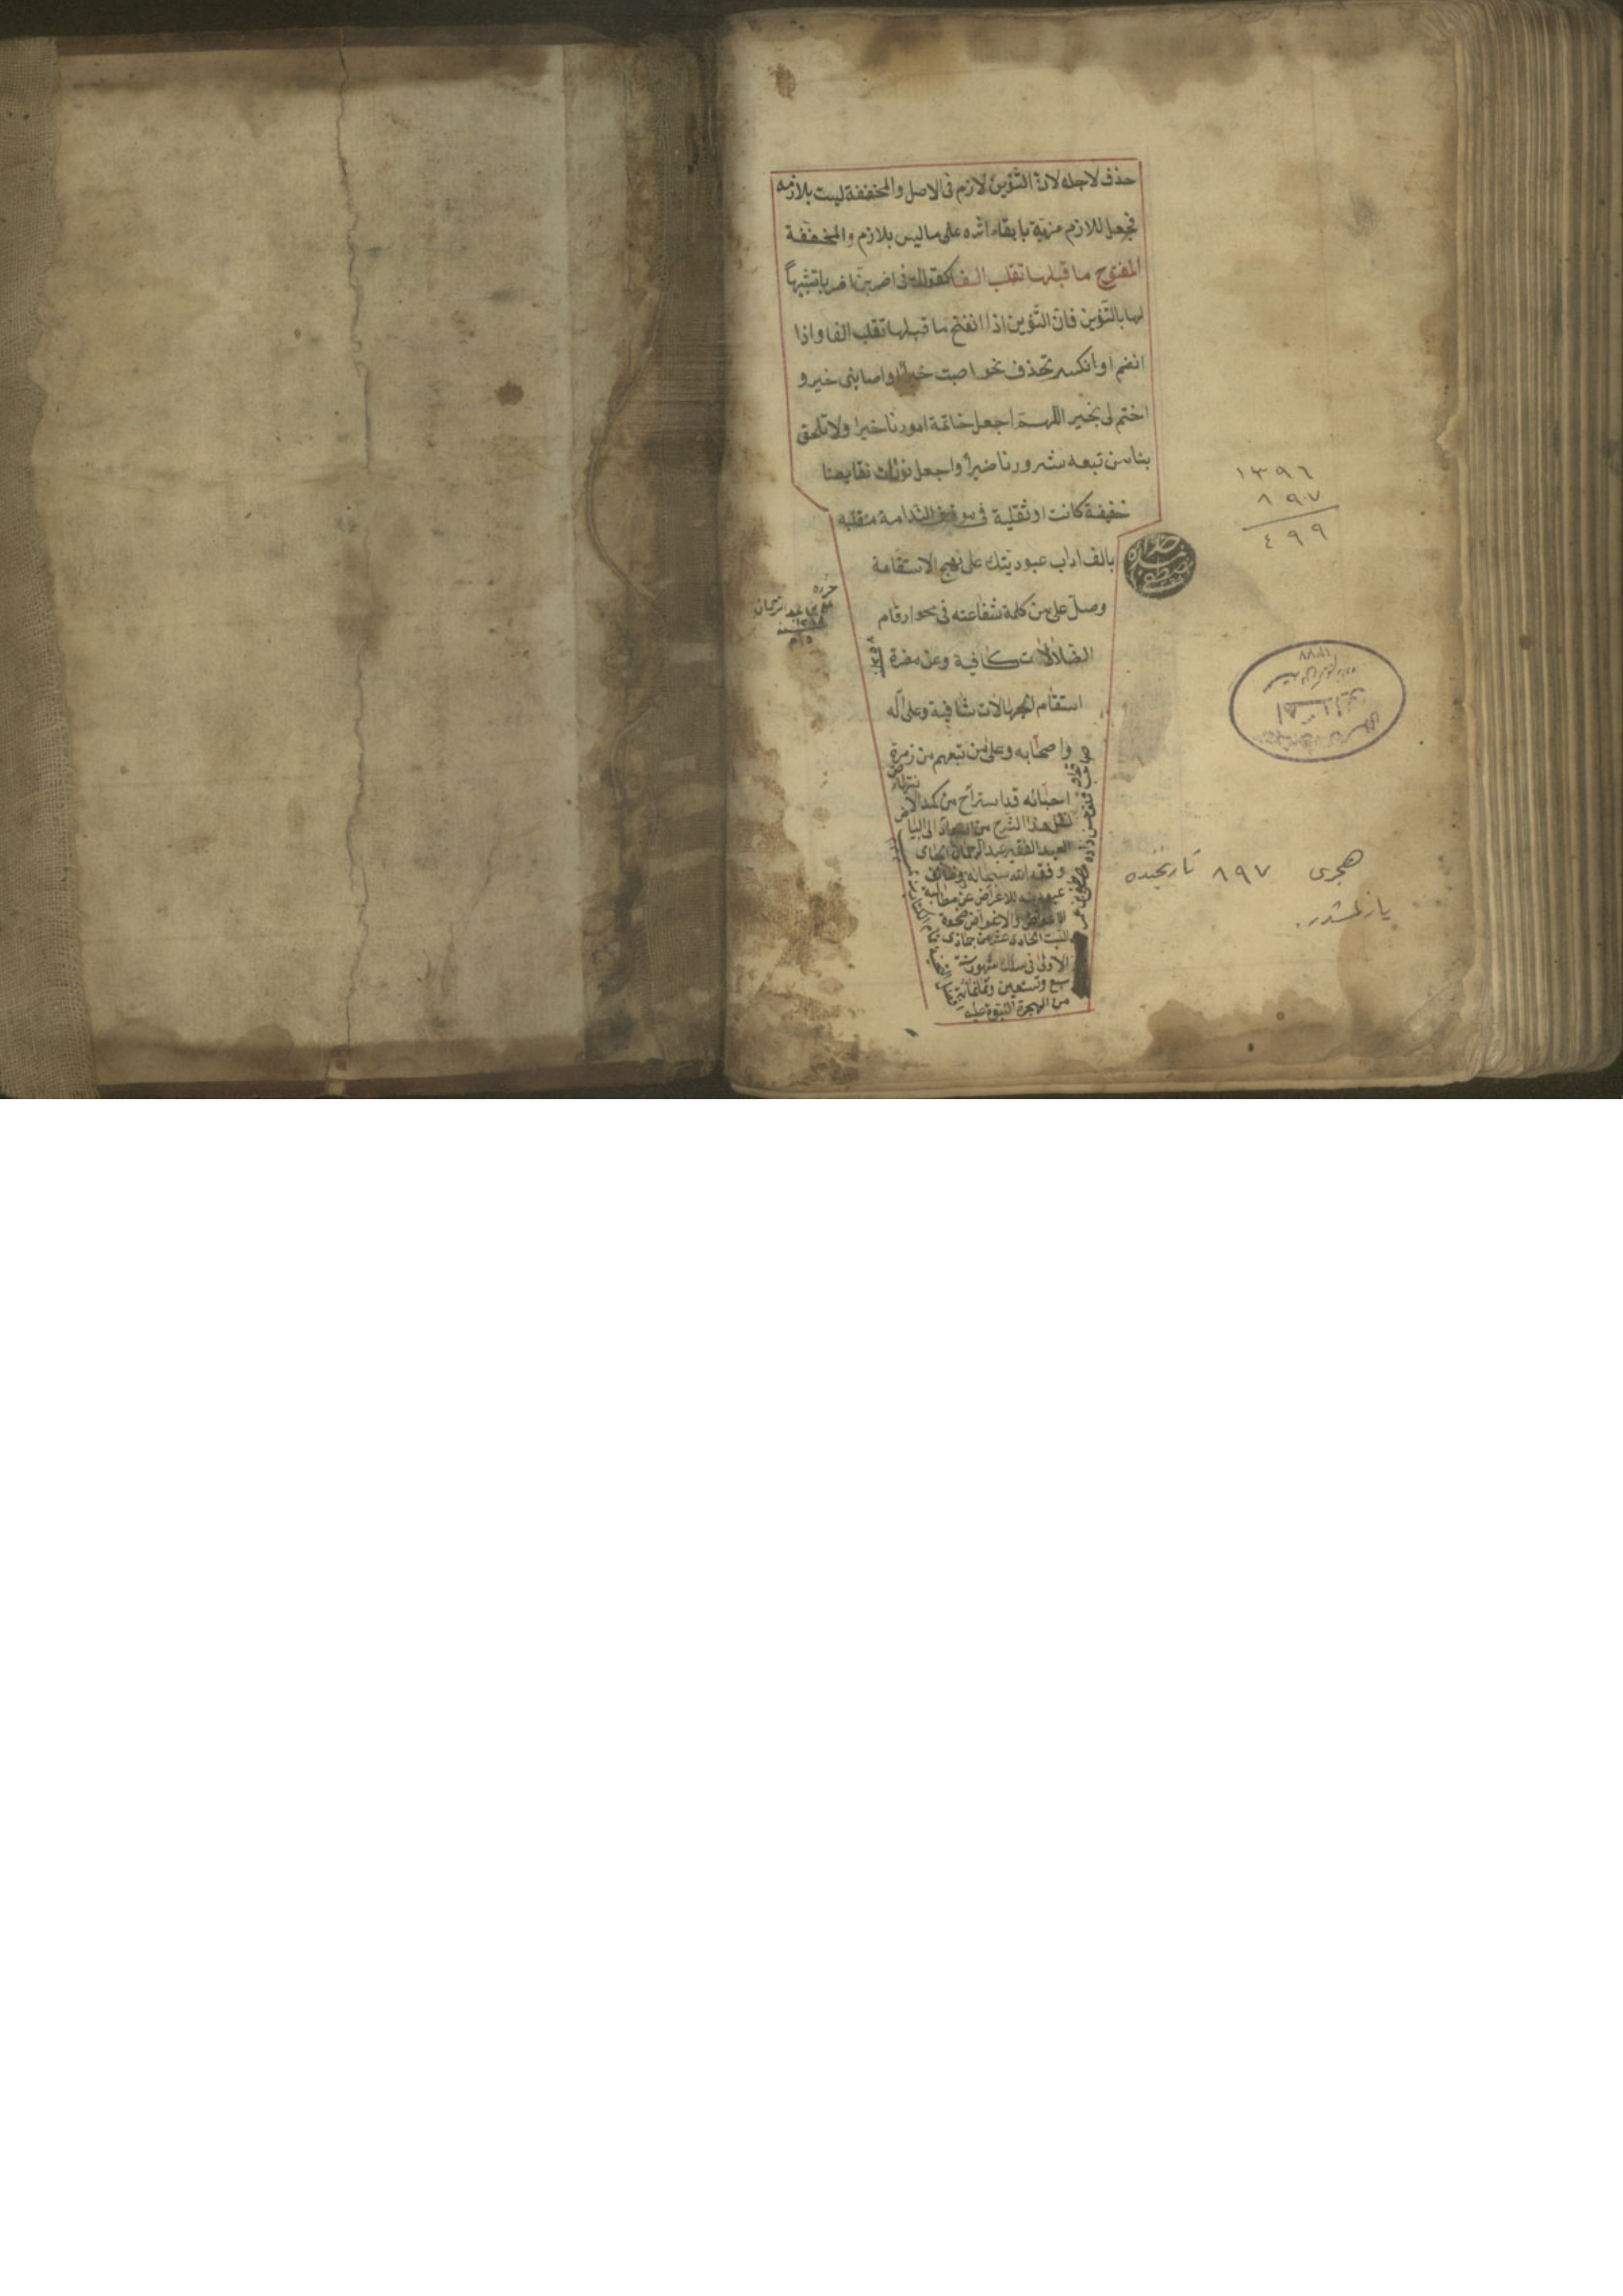 حذف لاجله لان التنوين لازم فى الاصل والمخففة ليست بلازمه
فجعل للازم مزية بابقاء اثره على ماليس بلازم والمخففة
المفتوح ما قبلها تقلب الفا كقولك فى اضربن اضربا تشبيهاً
لها بالتنوين فان التنوين اذا انفتح ما قبلها تقلب الفا واذا
انضم او انكسر تحذف نحو اصبت خيرا واصابنى خير و
اختم لى بخير اللهم اجعل خاتمة امورنا خيرا ولا تلحق
بنا من تبعه شرورنا ضيراً واجعل نونات نقايصنا
خفيفة كانت او ثقلية فى موقف الندامة منقلبه
بالف اداب عبوديتك على نهج الاستقامة
وصل على من كلمة شفاعته فى محو ارقام
الضلالات كافية وعن مضرة
استقام الجهالات شافية وعلى اله
واصحابه وعلى من تبعهم من زمرة
احبائه قد استراح من كد الانتهاض
لنقل هذا الشرح من السواد الى البياض
العبد الفقير عبد الرحمان الجامى
وفقه الله سبحانه
للاعراض عن مطالبة
الاعواض والاغراض ضحوة
السبت الحادى عشر من جمادى
الاولى فى سلك شهور سنة
سبع وتسعين وثمانمائة
من الهجرة النبوة عليه
١٣٩٦
٨٩٧
٤٩٩
هجرى ٨٩٧ تاريخنده
يازلمشدر.
١٣٧٧